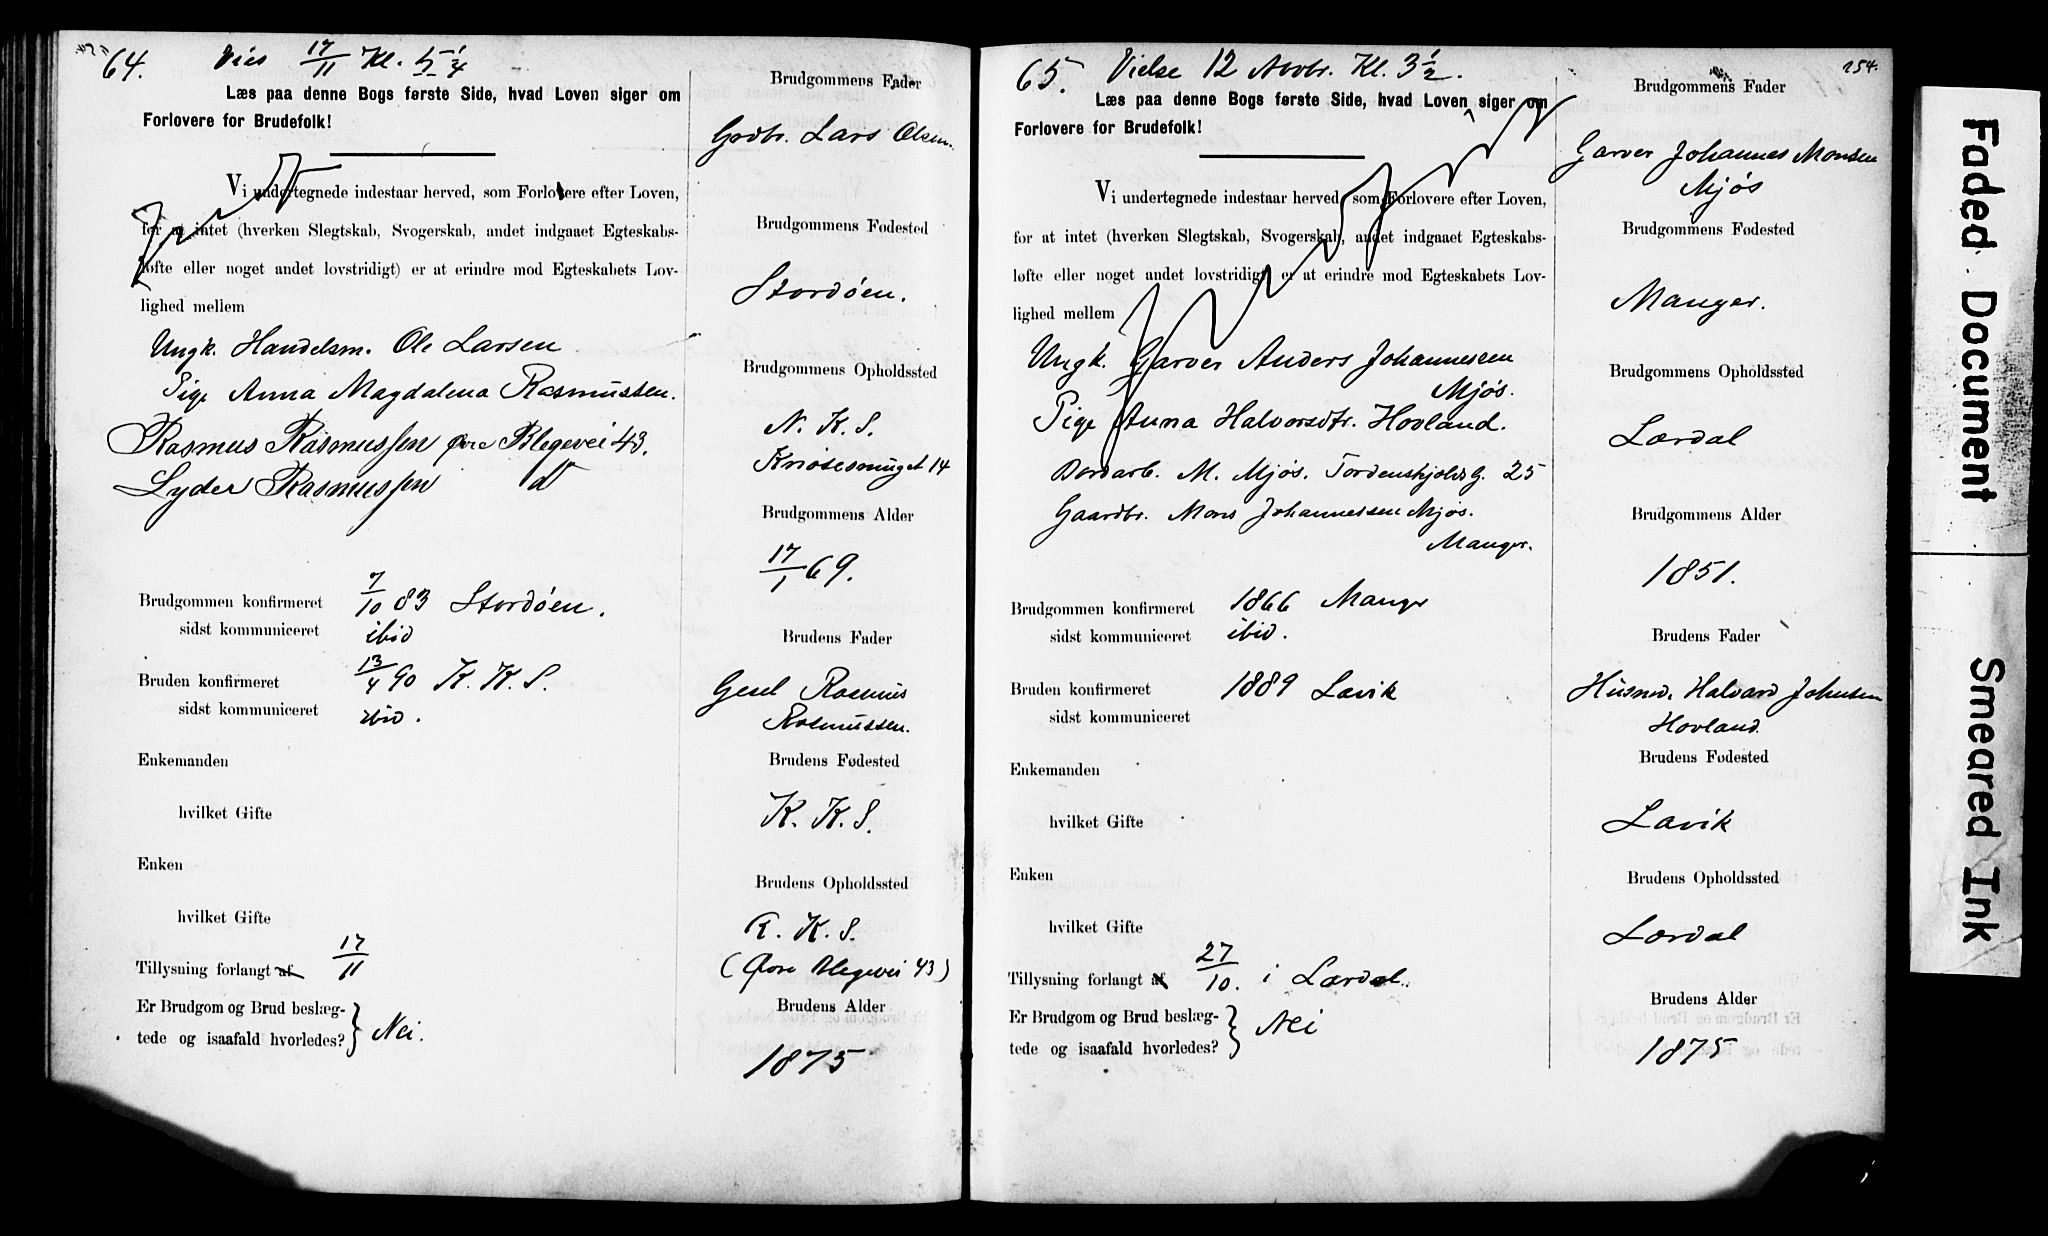 64. Vies 17/11 Kl. 5 1/4
Læs paa denne Bogs første Side, hvad Loven siger om
Forlovere for Brudefolk!
Vi undertegnede indestaar herved, som Forlovere efter Loven,
for at intet (hverken Slegtskab, Svogerskab, andet indgaaet Egteskabs-
løfte eller noget andet lovstridigt) er at erindre mod Egteskabets Lov-
lighed mellem
Ungk. Handelsm. Ole Larsen
Pige Anna Magdalena Rasmussen.
Rasmus Rasmussen øvre Blegevei 43.
Lyder Rasmussen
Brudgommen konfirmeret 7/10 83 Stordøen.
sidst kommuniceret ibid
Bruden konfirmeret 13/4 90 K. K. S.
sidst kommuniceret ibid.
Enkemanden
hvilket Gifte
Enken
hvilket Gifte
Tillysning forlangt af 17/11
Er Brudgom og Brud beslæg-
tede og isaafald hvorledes? } Nei.
Brudgommens Fader
Grdbr. Lars Olsen.
Brudgommens Fødested
Stordøen.
Brudgommens Opholdssted
N. K. S.
Knøsesmuget 14
Brudgommens Alder
17/1 69.
Brudens Fader
Gesel Rasmus
Rasmussen.
Brudens Fødested
K. K. S.
Brudens Opholdssted
K. K. S.
(Øvre Blegevei 43)
Brudens Alder
1875
254.
65. Vielse 12 Novbr. Kl. 3 1/2.
Læs paa denne Bogs første Side, hvad Loven siger om
Forlovere for Brudefolk!
Vi undertegnede indestaar herved, som Forlovere efter Loven,
for at intet (hverken Slegtskab, Svogerskab, andet indgaaet Egteskabs-
løfte eller noget andet lovstridigt) er at erindre mod Egteskabets Lov-
lighed mellem
Ungk. Garver Anders Johannessen
Mjøs.
Pige Anna Halvorsdtr. Hovland.
Bordarb. M. Mjøs. Tordenskjoldsg. 25
Gaardbr. Mons Johannessen Mjøs.
Manger.
Brudgommen konfirmeret 1866 Manger
sidst kommuniceret ibid.
Bruden konfirmeret 1889 Lavik
sidst kommuniceret
Enkemanden
hvilket Gifte
Enken
hvilket Gifte
Tillysning forlangt af 27/10. i Lærdal.
Er Brudgom og Brud beslæg-
tede og isaafald hvorledes? } Nei
Brudgommens Fader
Garver Johannes Monsen
Mjøs
Brudgommens Fødested
Manger.
Brudgommens Opholdssted
Lærdal
Brudgommens Alder
1851.
Brudens Fader
Husmd. Halvard Johnsen
Hovland.
Brudens Fødested
Lavik
Brudens Opholdssted
Lærdal
Brudens Alder
1875
Faded Document
Smeared Ink